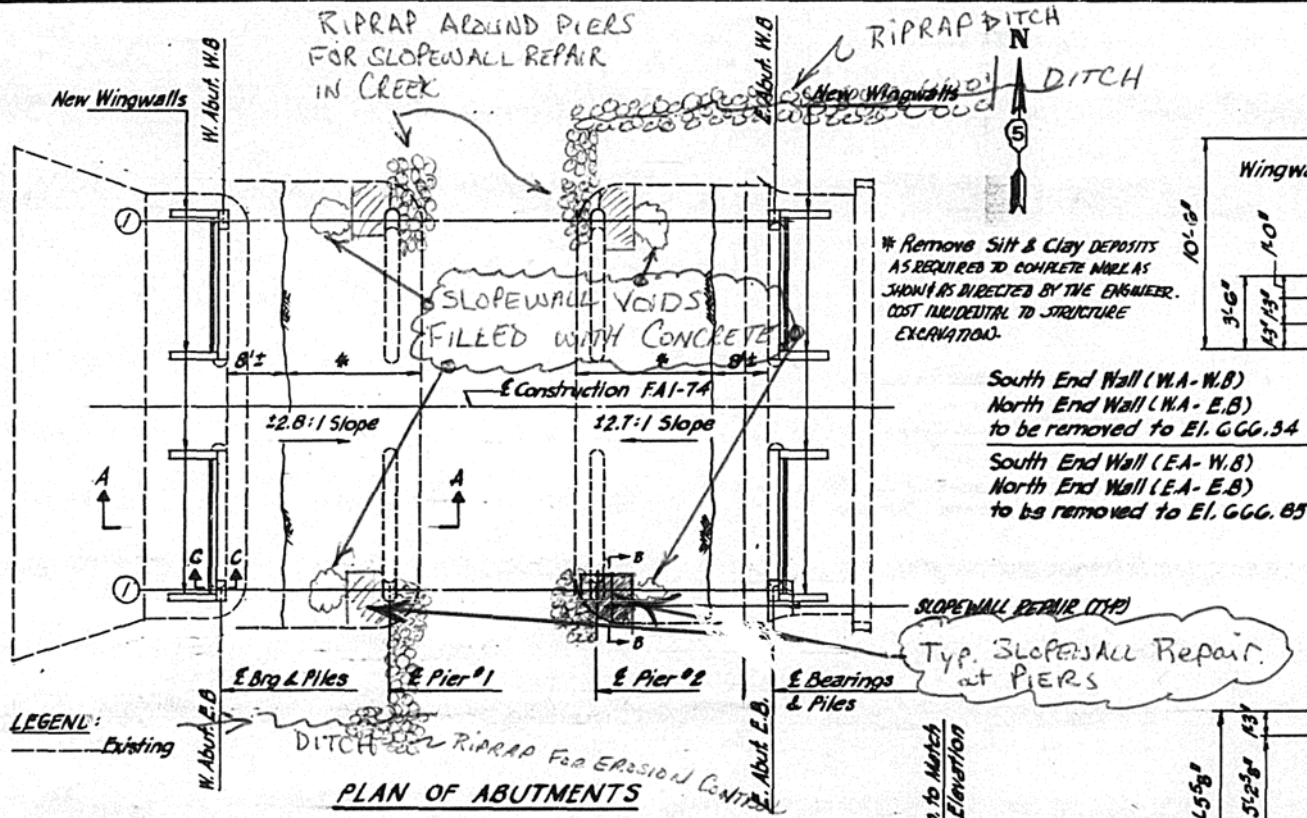 RIPRAP AROUND PIERS
FOR SLOPEWALL REPAIR
IN CREEK
RIPRAP DITCH
N
DITCH
5
New Wingwalls
W. Abut. W.B
E. Abut. W.B
New Wingwalls
Wingwa
10'-6"
1'-0"
3'-6"
* Remove Silt & Clay DEPOSITS
AS REQUIRED TO COMPLETE WORK AS
SHOWN & AS DIRECTED BY THE ENGINEER.
COST INCIDENTAL TO STRUCTURE
EXCAVATION.
1
SLOPEWALL VOIDS
FILLED WITH CONCRETE
8'±
*
*
8'±
℄ Construction F.A.I-74
±2.8:1 Slope
±2.7:1 Slope
South End Wall (W.A-W.B)
North End Wall (W.A-E.B)
to be removed to El. 666.34
South End Wall (E.A-W.B)
North End Wall (E.A-E.B)
to be removed to El. 666.85
A
A
C
C
B
B
1
SLOPEWALL REPAIR (TYP)
Typ. SLOPEWALL Repair.
at PIERS
℄ Brg & Piles
℄ Pier #1
℄ Pier #2
℄ Bearings
& Piles
LEGEND:
Existing
W. Abut. E.B
DITCH
RIPRAP FOR EROSION CONTROL
E. Abut. E.B.
to Match
Elevation
5'-2 5/8"
PLAN OF ABUTMENTS